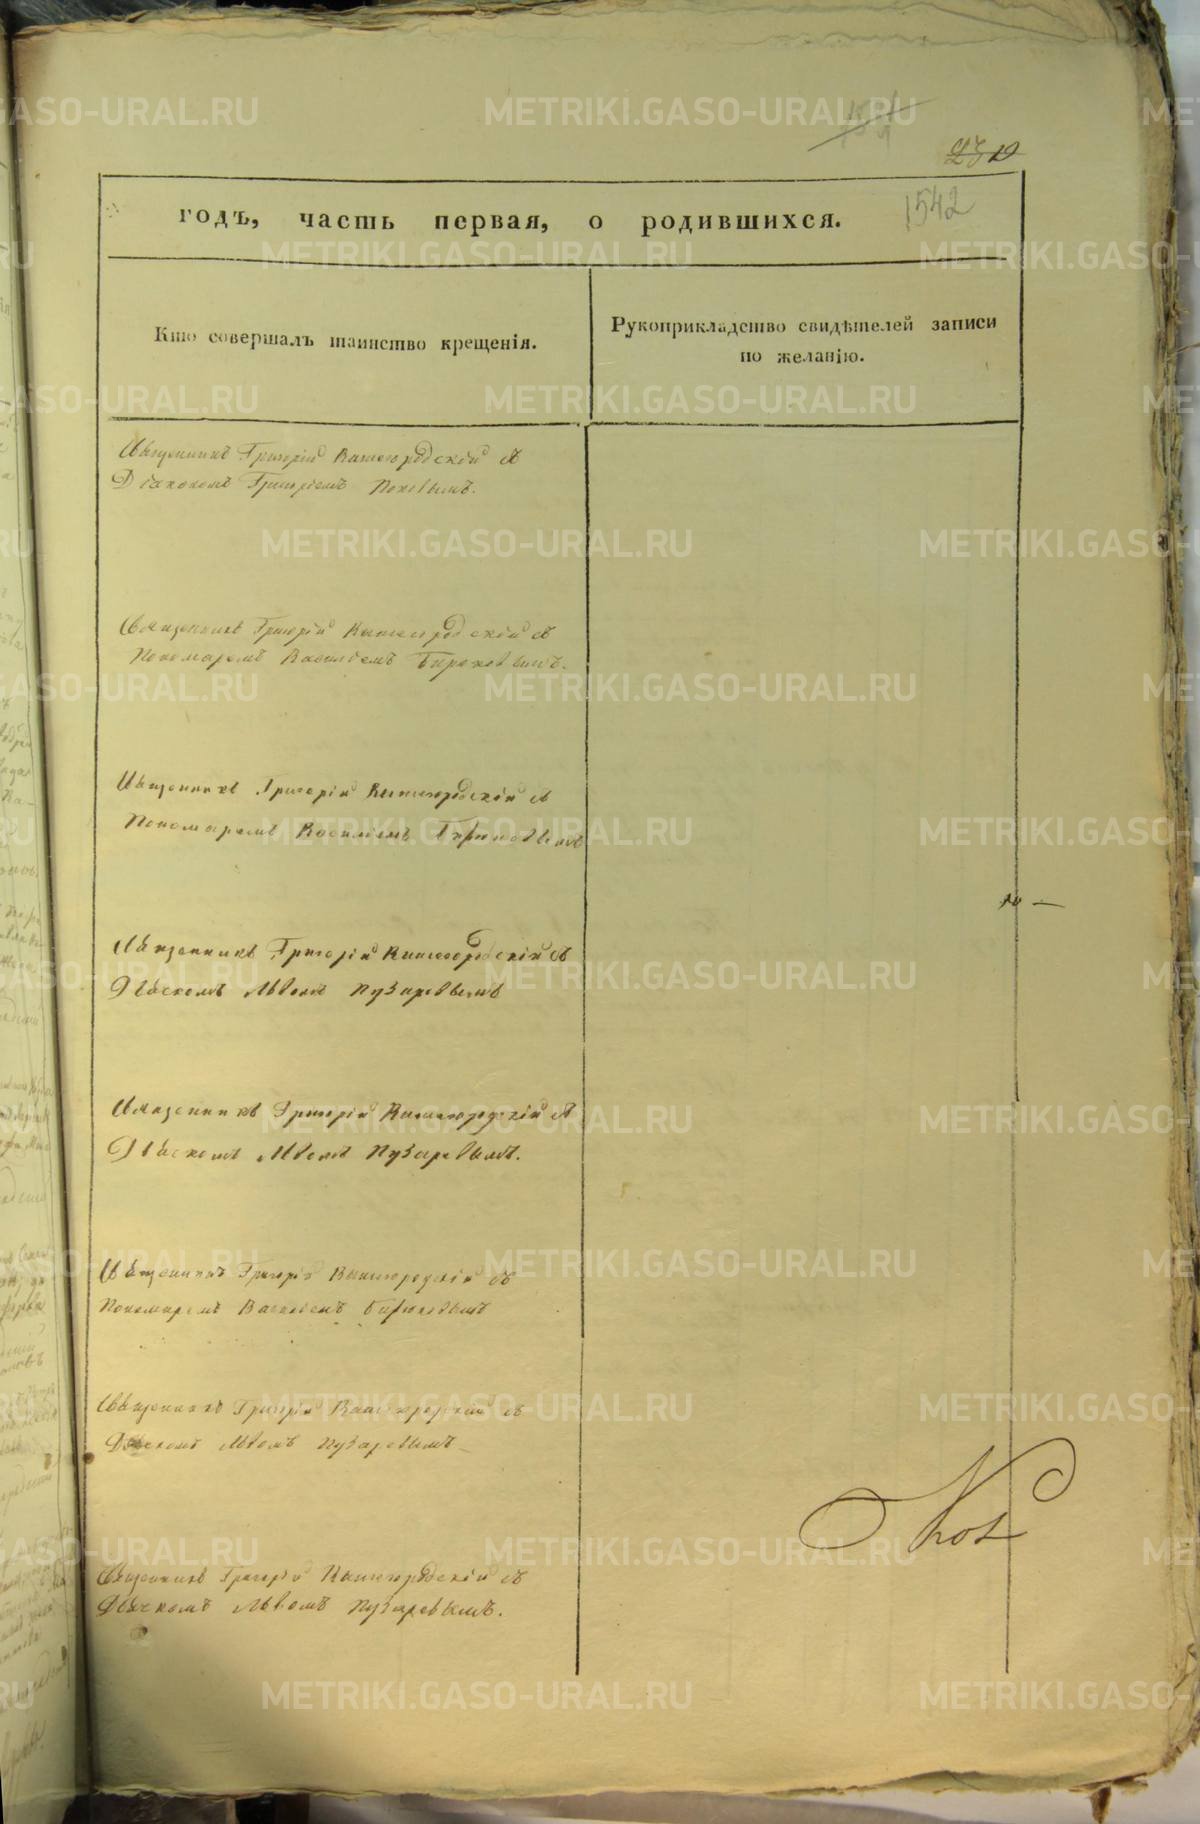 1542
годъ, часть первая, о родившихся.
Кто совершалъ таинство крещенія.
Рукоприкладство свидѣтелей записи
по желанію.
Священникъ Григорій Вышегородскій съ
Діакономъ Григоріемъ Поповымъ.
Священникъ Григорій Вышегородскій съ
Пономаремъ Василіемъ Бирюковымъ.
Священникъ Григорій Вышегородскій съ
Пономаремъ Василіемъ Бирюковымъ
Священникъ Григорій Вышегородскій съ
Дьячкомъ Львомъ Пузыревымъ
Священникъ Григорій Вышегородскій съ
Дьячкомъ Львомъ Пузыревымъ.
Священникъ Григорій Вышегородскій съ
Пономаремъ Василіемъ Бирюковымъ
Священникъ Григорій Вышегородскій съ
Дьячкомъ Львомъ Пузыревымъ
Священникъ Григорій Вышегородскій съ
Дьячкомъ Львомъ Пузыревымъ.
METRIKI.GASO-URAL.RU